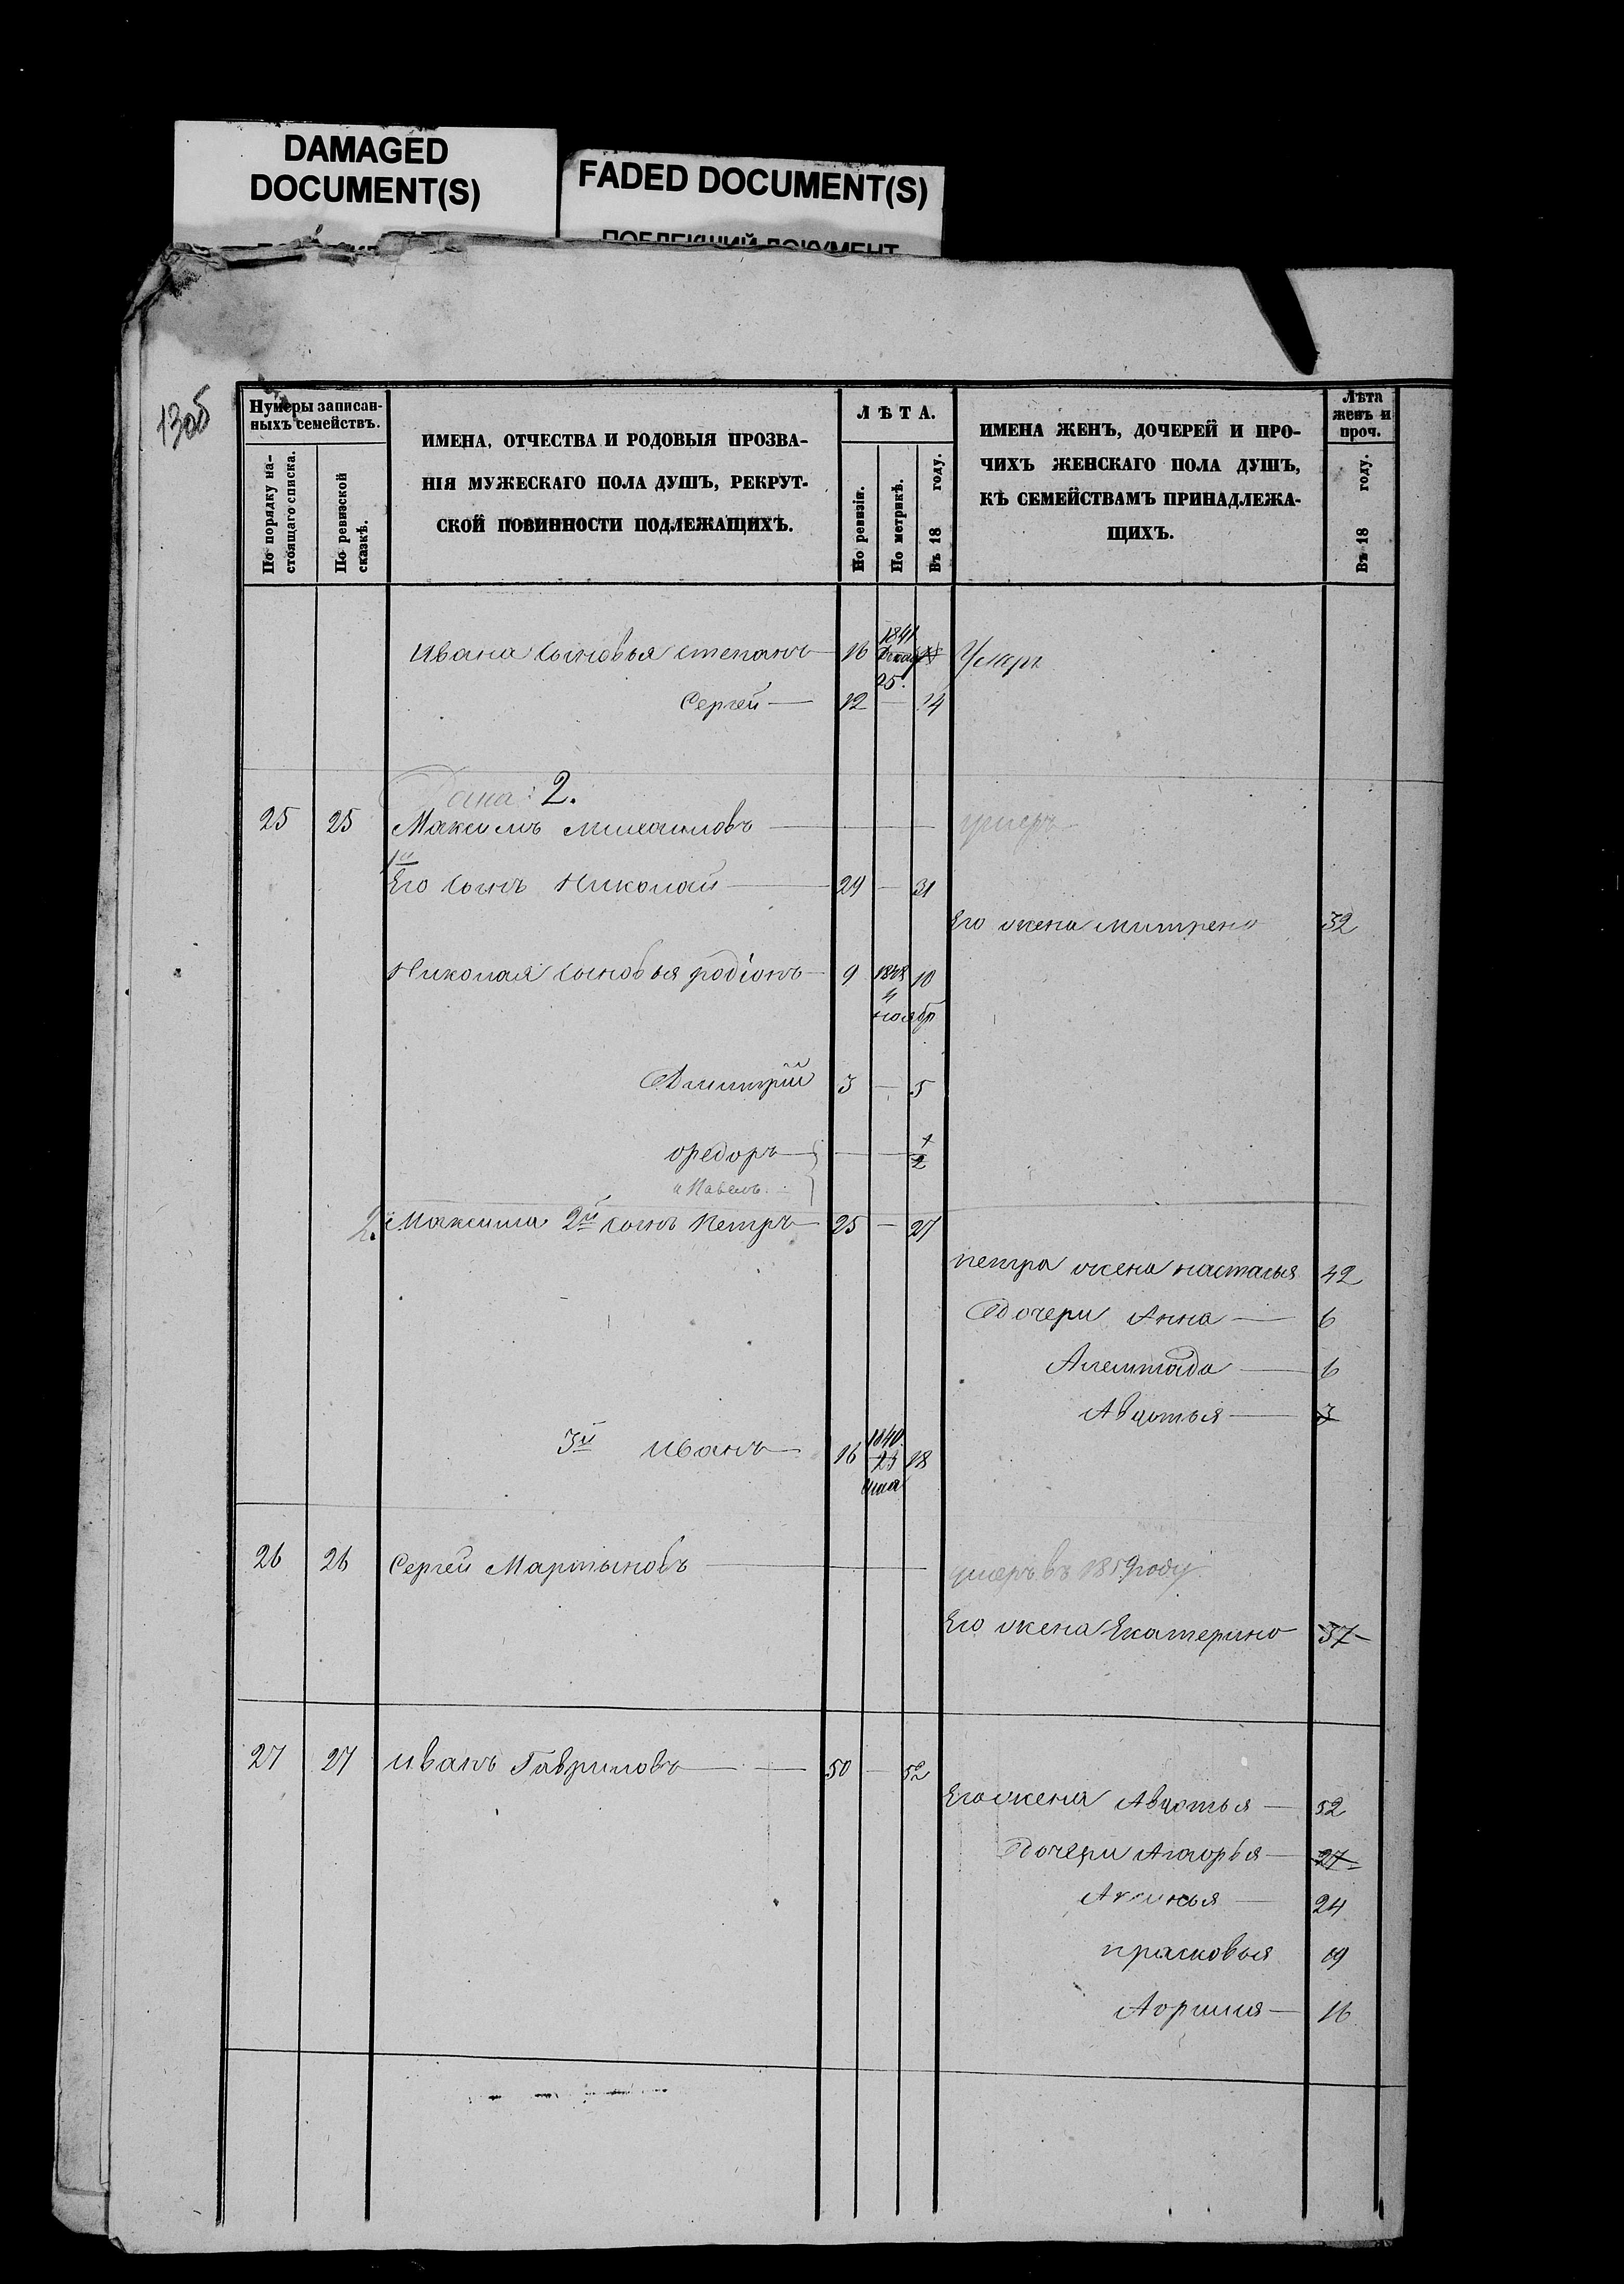 DAMAGED
DOCUMENT(S)
FADED DOCUMENT(S)
ПОБЛЕКШИЙ ДОКУМЕНТ
13об
Нумеры записан-
ныхъ семействъ.
По порядку на-
стоящаго списка.
По ревизской
сказкѣ.
ИМЕНА, ОТЧЕСТВА И РОДОВЫЯ ПРОЗВА-
НІЯ МУЖЕСКАГО ПОЛА ДУШЪ, РЕКРУТ-
СКОЙ ПОВИННОСТИ ПОДЛЕЖАЩИХЪ.
ЛѢТА.
По ревизіи.
По метрикѣ.
Въ 18 году.
ИМЕНА ЖЕНЪ, ДОЧЕРЕЙ И ПРО-
ЧИХЪ ЖЕНСКАГО ПОЛА ДУШЪ,
КЪ СЕМЕЙСТВАМЪ ПРИНАДЛЕЖА-
ЩИХЪ.
Лѣта
женъ и
проч.
Въ 18 году.
Ивана сыновья степанъ 16 1841 25. Умеръ
Сергей — 12 — 14
2.
25 25 Максимъ михаиловъ — умеръ
1й
Его сынъ Николай — 29 — 31
Его жена митрена 32
Николая сыновья родіонъ — 9 1848 4 ноябр 10
Дмитрій 3 — 5
ѳедоръ — — — 2
и Павелъ.
2. Максима 2й сынъ Петръ — 25 — 27
петра жена настасья 42
Дочери Анна — 6
6
Авдотья — 3
3й иванъ — 16 1840 23 18
26 26 Сергей Мартыновъ — умеръ въ 1859 году
Его жена Екатерина 37 —
27 27 иванъ Гавриловъ — 50 — 52
Его жена Авдотья — 52
Дочери 27
Аксинья — 24
прасковья 19
16